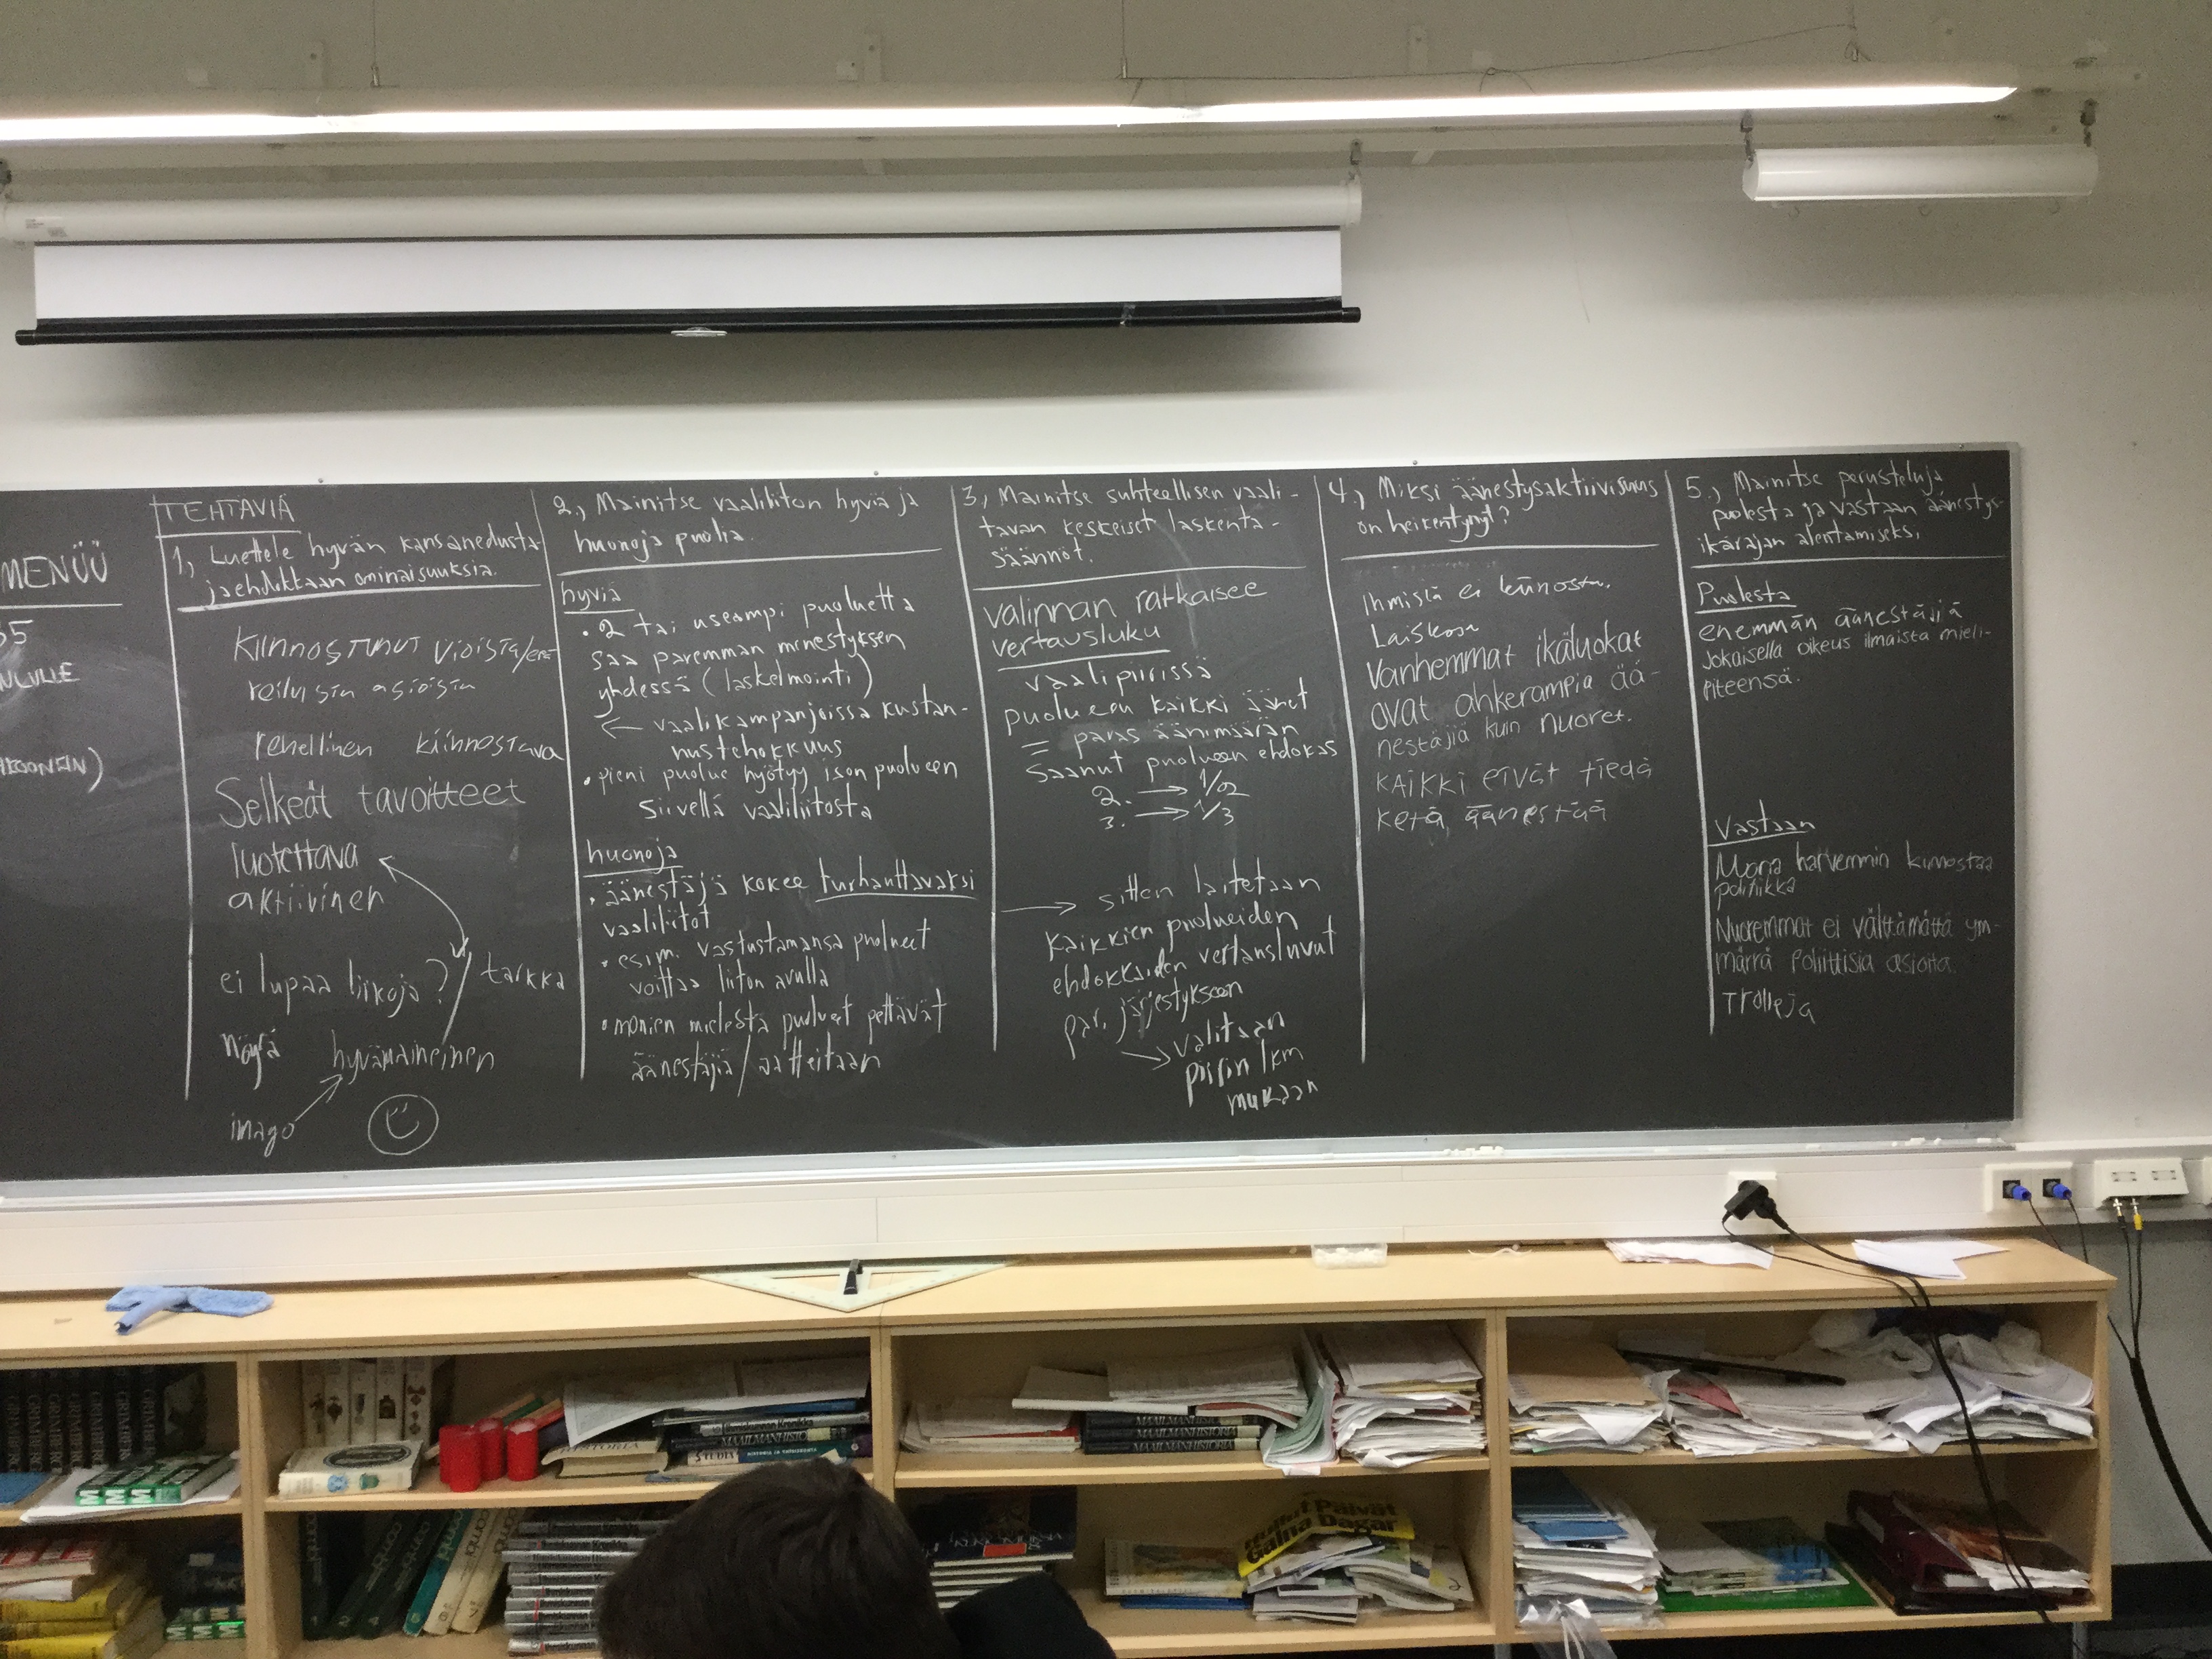 MENÜÜ
TEHTÄVIÄ
1, Luettele hyvän kansanedusta-
jaehdokkaan ominaisuuksia.
KIINNOSTUNUT
asioista
rehellinen kiinnostava
Selkeät tavoitteet
luotettava
aktiivinen
ei lupaa liikoja? / tarkka
nöyrä hyvämaineinen
imago
2., Mainitse vaaliliiton hyviä ja
huonoja puolia.
hyviä
• 2 tai useampi puoluetta
saa paremman menestyksen
yhdessä (laskelmointi)
← vaalikampanjoissa kustan-
nustehokkuus
• pieni puolue hyötyy ison puolueen
siivellä vaaliliitosta
huonoja
• äänestäjä kokee turhauttavaksi
vaaliliitot
• esim. vastustamansa puolueet
voittaa liiton avulla
• monien mielestä puolueet pettävät
äänestäjiä/aatteitaan
3, Mainitse suhteellisen vaali-
tavan keskeiset laskenta-
säännöt.
valinnan ratkaisee
vertausluku
vaalipiirissä
puolueen kaikki äänet
= paras äänimäärän
saanut puolueen ehdokas
2. → 1/2
3. → 1/3
→ sitten laitetaan
kaikkien puolueiden
ehdokkaiden vertausluvut
par. järjestykseen
→ valitaan
piirin lkm
mukaan
4., Miksi äänestysaktiivisuus
on heikentynyt?
Ihmisiä ei kiinosta.
Laiskoja
Vanhemmat ikäluokat
ovat ahkerampia ää-
nestäjiä kuin nuoret.
KAIKKI eivät tiedä
ketä äänestää
5., Mainitse perusteluja
puolesta ja vastaan äänestys-
ikärajan alentamiseksi.
Puolesta
enemmän äänestäjiä
Jokaisella oikeus ilmaista mieli-
piteensä.
Vastaan
Moria harvemmin kiinnostaa
politiikka
Nuoremmat ei välttämättä ym-
märrä poliittisia asioita.
Trolleja
MAAILMANHISTORIA
MAAILMANHISTORIA
MAAILMANHISTORIA
Hullut Päivät
Galna Dagar